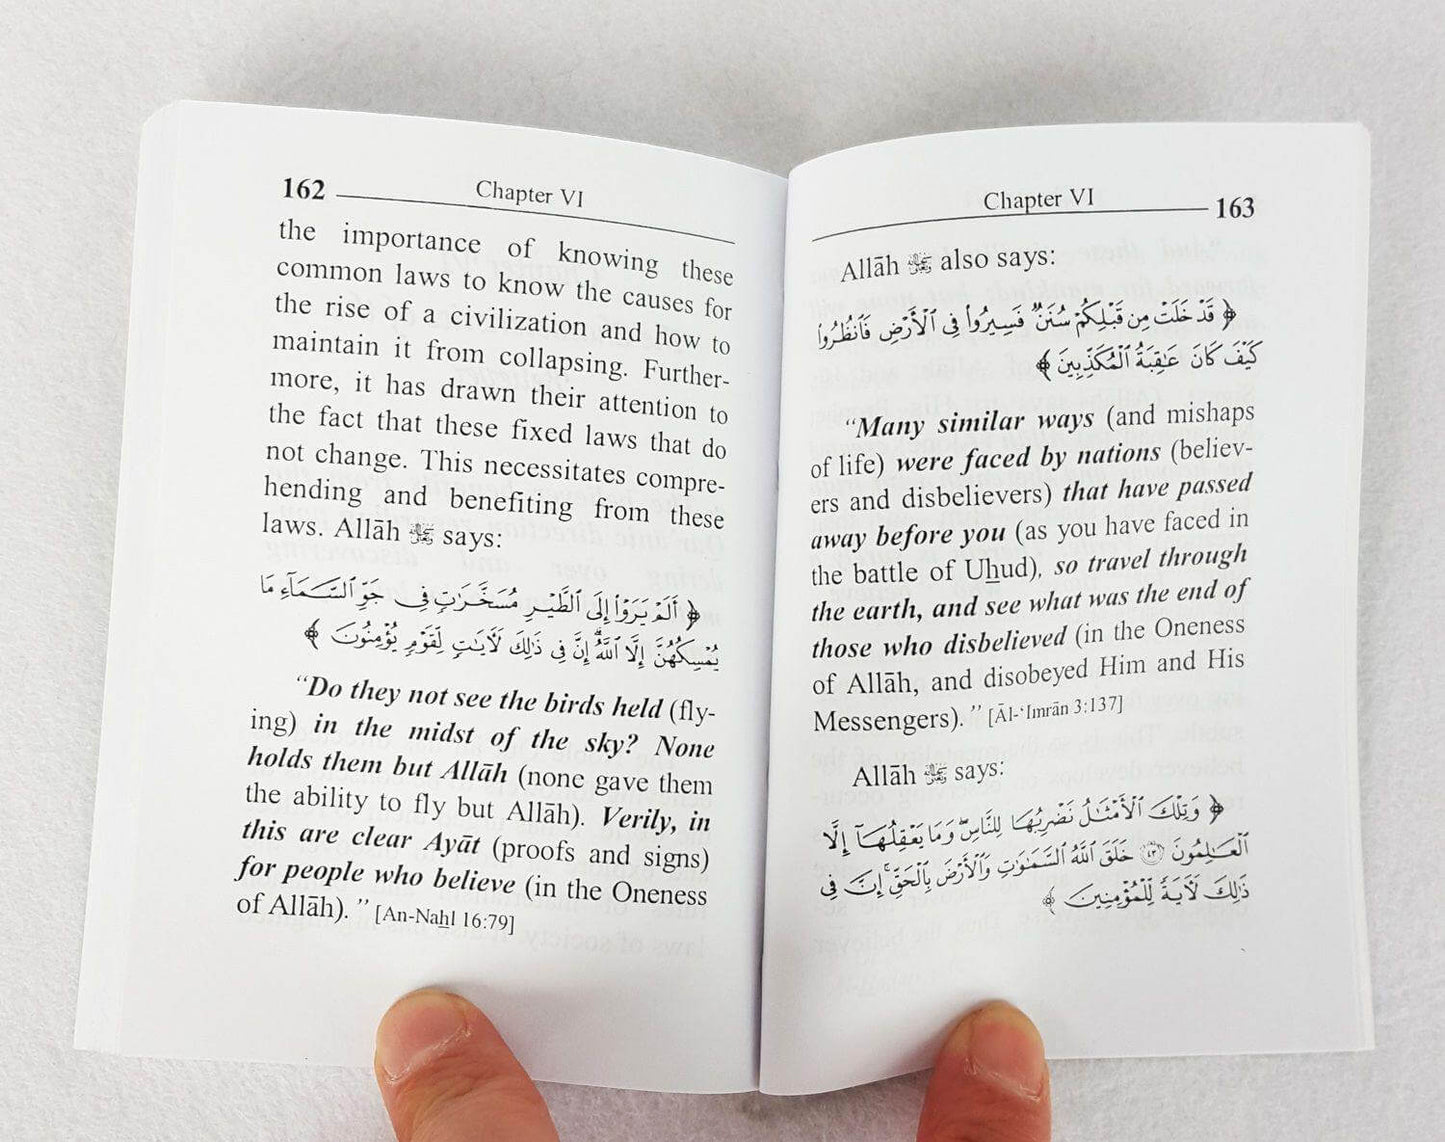 162 Chapter VI
the importance of knowing these
common laws to know the causes for
the rise of a civilization and how to
maintain it from collapsing. Further-
more, it has drawn their attention to
the fact that these fixed laws that do
not change. This necessitates compre-
hending and benefiting from these
laws. Allāh ﷻ says:
﴿ أَلَمْ يَرَوْا۟ إِلَى ٱلطَّيْرِ مُسَخَّرَٰتٍ فِى جَوِّ ٱلسَّمَآءِ مَا
يُمْسِكُهُنَّ إِلَّا ٱللَّهُ ۗ إِنَّ فِى ذَٰلِكَ لَءَايَٰتٍ لِّقَوْمٍ يُؤْمِنُونَ ﴾
“Do they not see the birds held (fly-
ing) in the midst of the sky? None
holds them but Allāh (none gave them
the ability to fly but Allāh). Verily, in
this are clear Ayāt (proofs and signs)
for people who believe (in the Oneness
of Allāh). ” [An-Naẖl 16:79]
Chapter VI 163
Allāh ﷻ also says:
﴿ قَدْ خَلَتْ مِن قَبْلِكُمْ سُنَنٌ فَسِيرُوا۟ فِى ٱلْأَرْضِ فَٱنظُرُوا۟
كَيْفَ كَانَ عَٰقِبَةُ ٱلْمُكَذِّبِينَ ﴾
“Many similar ways (and mishaps
of life) were faced by nations (believ-
ers and disbelievers) that have passed
away before you (as you have faced in
the battle of Uẖud), so travel through
the earth, and see what was the end of
those who disbelieved (in the Oneness
of Allāh, and disobeyed Him and His
Messengers). ” [Āl-‘Imrān 3:137]
Allāh ﷻ says:
﴿ وَتِلْكَ ٱلْأَمْثَٰلُ نَضْرِبُهَا لِلنَّاسِ ۖ وَمَا يَعْقِلُهَآ إِلَّا
ٱلْعَٰلِمُونَ ٤٣ خَلَقَ ٱللَّهُ ٱلسَّمَٰوَٰتِ وَٱلْأَرْضَ بِٱلْحَقِّ ۚ إِنَّ فِى
ذَٰلِكَ لَءَايَةً لِّلْمُؤْمِنِينَ ﴾